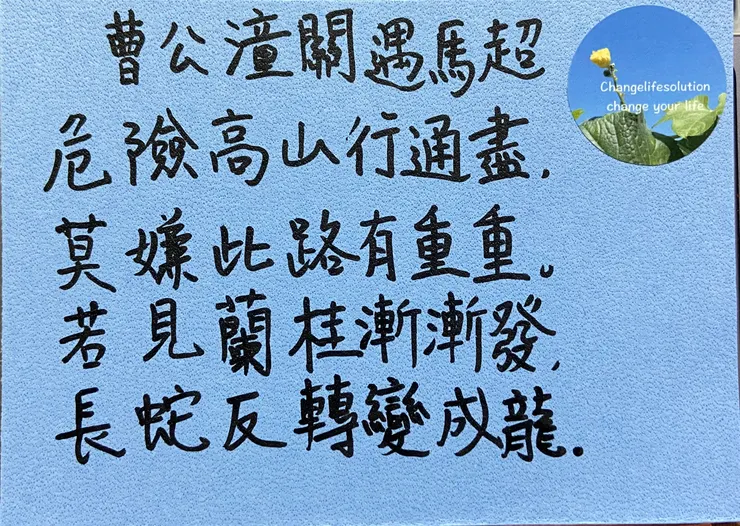 曹公潼關遇馬超
Changelifesolution
change your life
危險高山行通盡,
莫嫌此路有重重。
若見蘭桂漸漸發,
長蛇反轉變成龍.